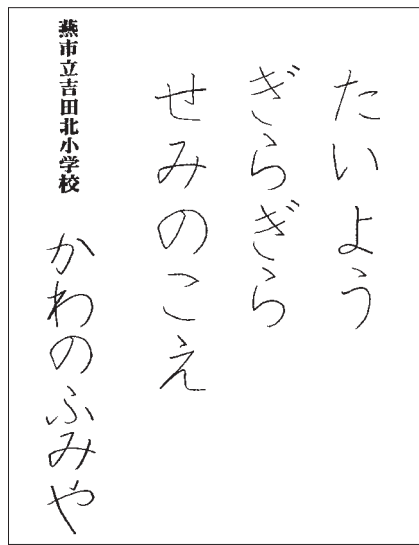 たいよう
ぎらぎら
せみのこえ
燕市立吉田北小学校
かわのふみや